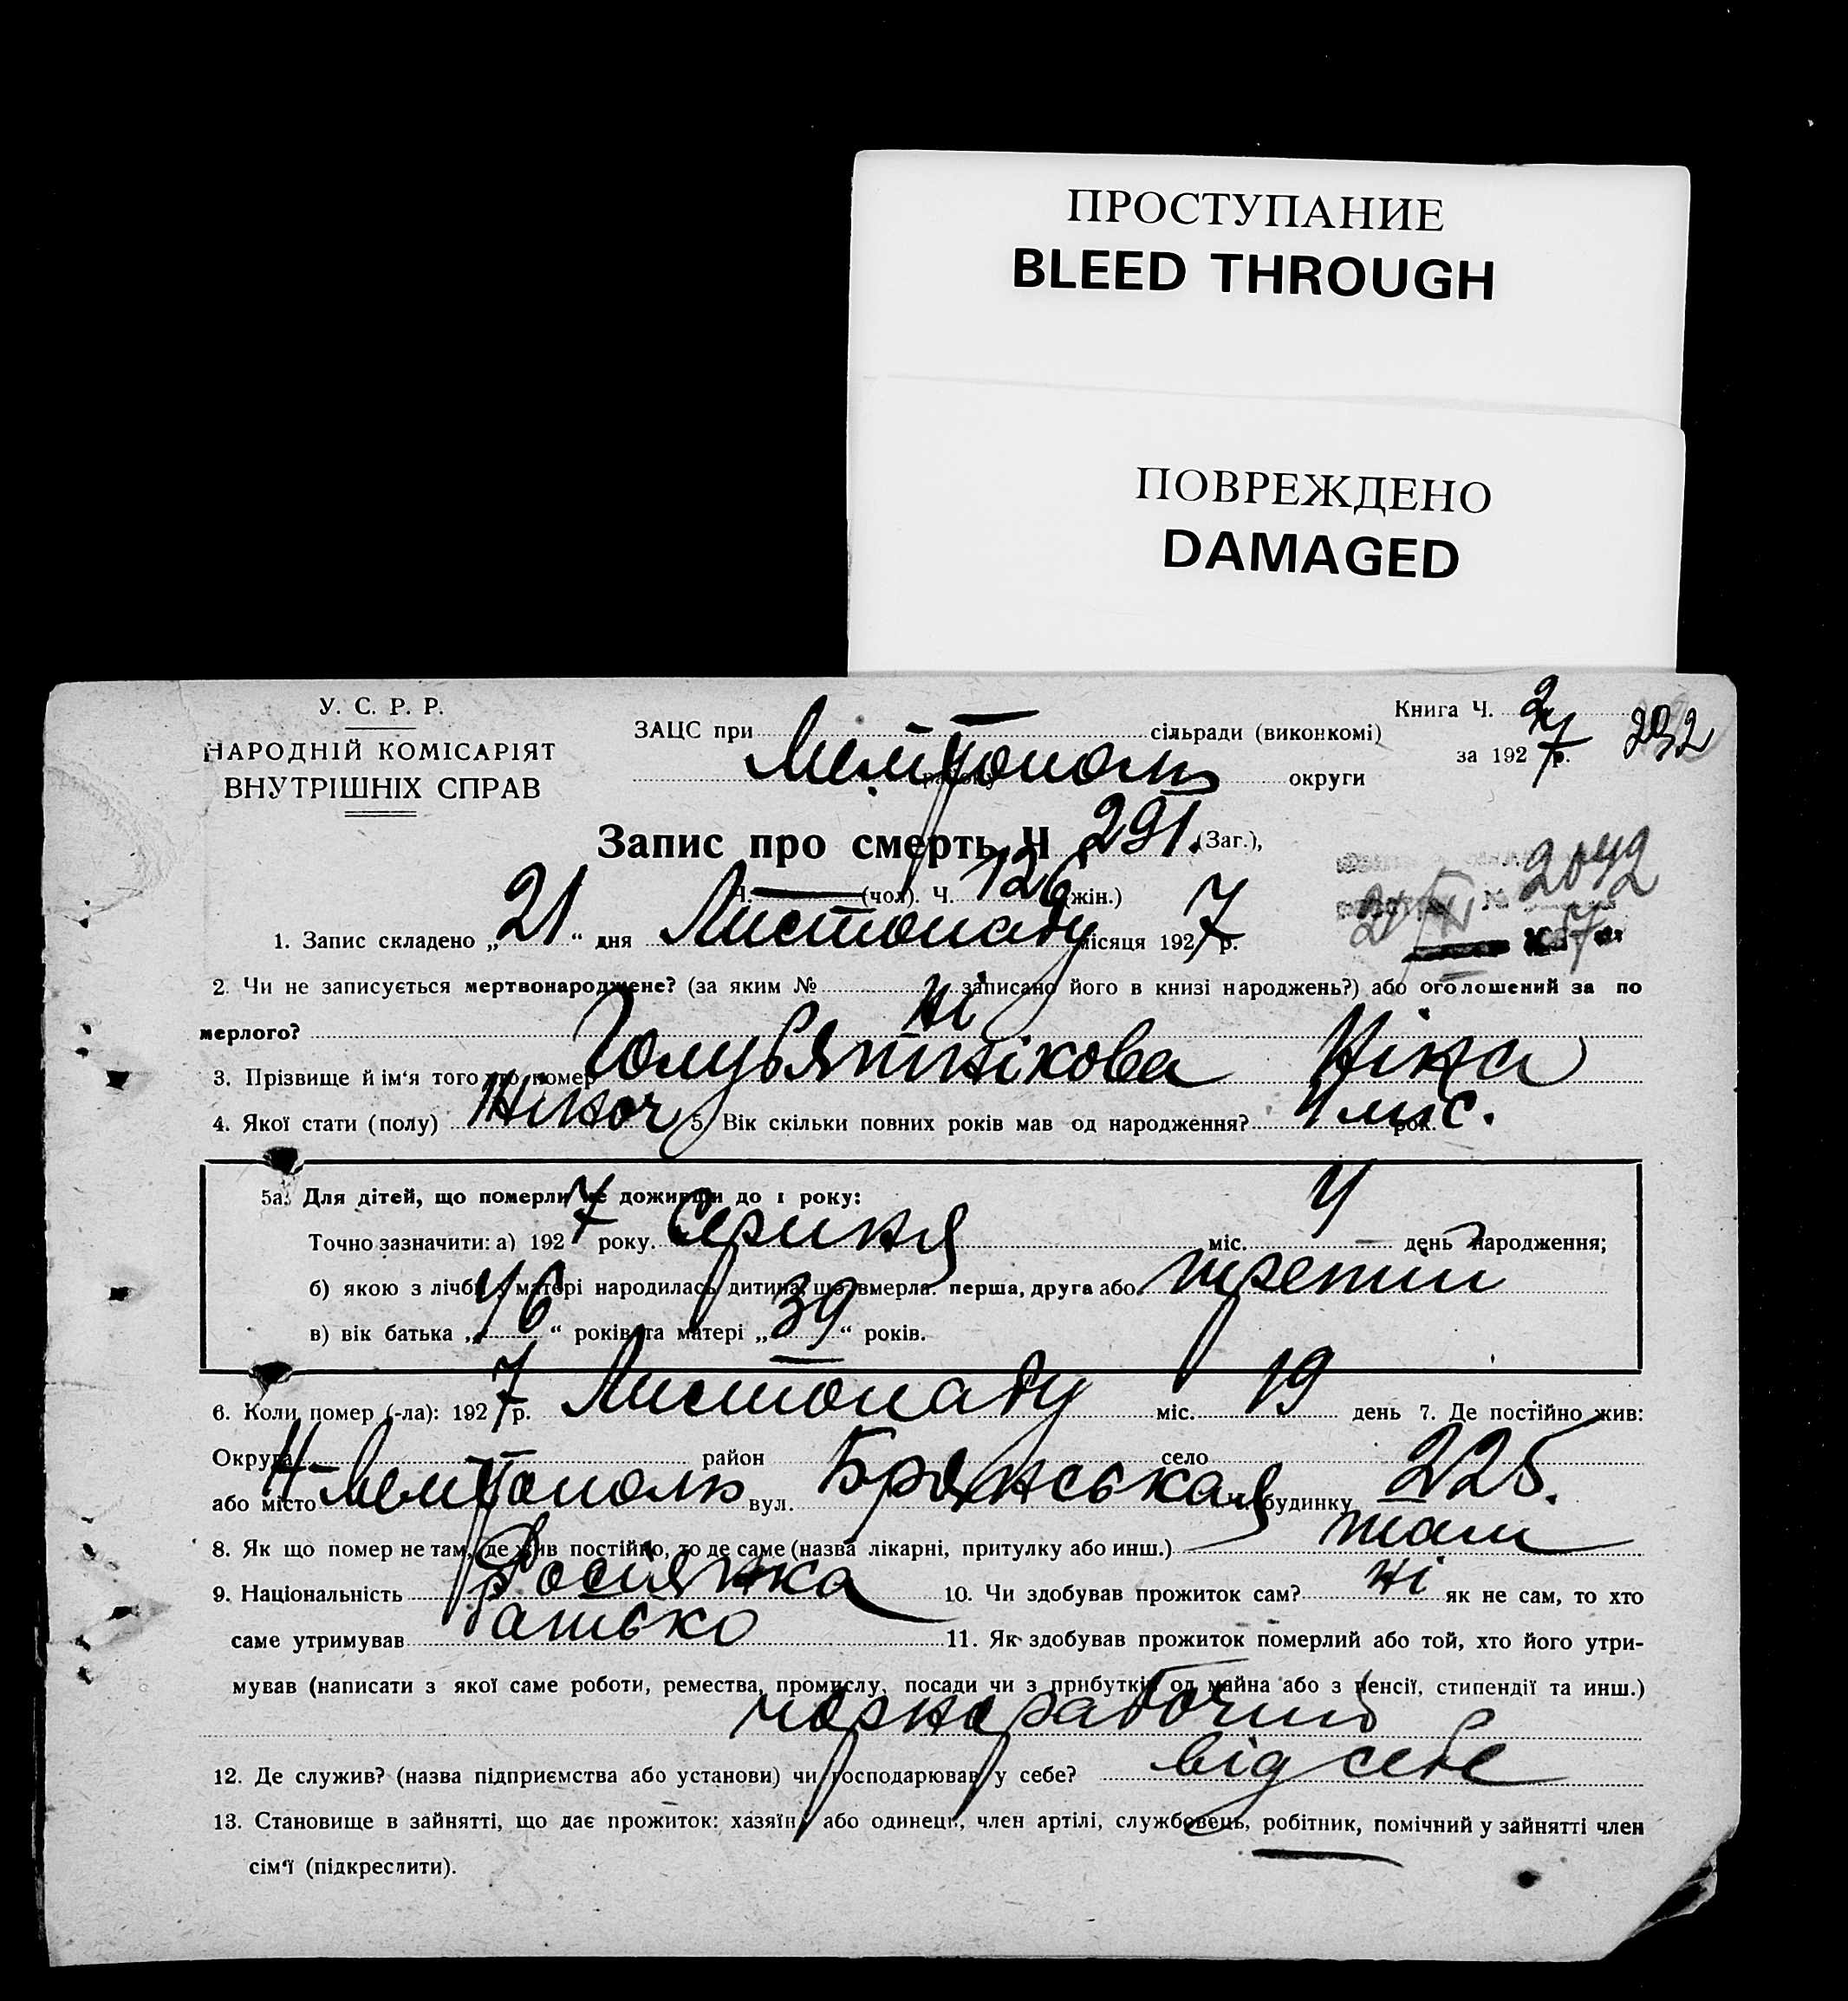 ПРОСТУПАНИЕ
BLEED THROUGH
ПОВРЕЖДЕНО
DAMAGED
У. С. Р. Р.
НАРОДНІЙ КОМІСАРІЯТ
ВНУТРІШНІХ СПРАВ
Книга Ч. 2
за 1927 р. 292
ЗАЦС при сільради (виконкомі)
Мелітополь району округи
Запис про смерть Ч 291. (Заг.),
Ч. (чол). Ч. 126 (жін.)
2042
1. Запис складено „21“ дня Листопаду місяця 1927 р.
2. Чи не записується мертвонароджене? (за яким № записано його в книзі народжень?) або оголошений за по
мерлого? ні
3. Прізвище й ім'я того хто помер Голубятнікова Ніна
4. Якої стати (полу) жіноч 5. Вік скільки повних років мав од народження? 4 міс. рок.
5а. Для дітей, що померли не доживши до 1 року:
Точно зазначити: а) 1927 року. Серпня міс. 4 день народження;
б) якою з лічби у матері народилась дитина, що вмерла: перша, друга або третий
в) вік батька „46“ років та матері „39“ років.
6. Коли помер (-ла): 1927 р. Листопаду міс. 19 день 7. Де постійно жив:
Округа район село
або місто Н-Мелітополь вул. Брянськая ч. будинку 225.
8. Як що помер не там, де жив постійно, то де саме (назва лікарні, притулку або инш.) там
9. Національність Росіянка 10. Чи здобував прожиток сам? ні як не сам, то хто
саме утримував батько 11. Як здобував прожиток померлий або той, хто його утри-
мував (написати з якої саме роботи, ремества, промислу, посади чи з прибутків од майна або з пенсії, стипендії та инш.)
чорнорабочий
12. Де служив? (назва підприємства або установи) чи господарював у себе? від себе
13. Становище в зайнятті, що дає прожиток: хазяїн, або одинець, член артілі, службовець, робітник, помічний у зайнятті член
сім'ї (підкреслити).